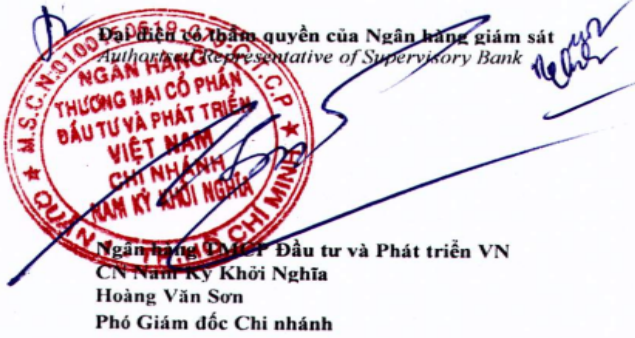 Đại diện có thẩm quyền của Ngân hàng giám sát
Authorised Representative of Supervisory Bank
NGÂN HÀNG
THƯƠNG MẠI CỔ PHẦN
ĐẦU TƯ VÀ PHÁT TRIỂN
VIỆT NAM
CHI NHÁNH
NAM KỲ KHỞI NGHĨA
M.S.C.N:
C.T.C.P
QUẬN 1 - TP HỒ CHÍ MINH
Ngân hàng TMCP Đầu tư và Phát triển VN
CN Nam Kỳ Khởi Nghĩa
Hoàng Văn Sơn
Phó Giám đốc Chi nhánh